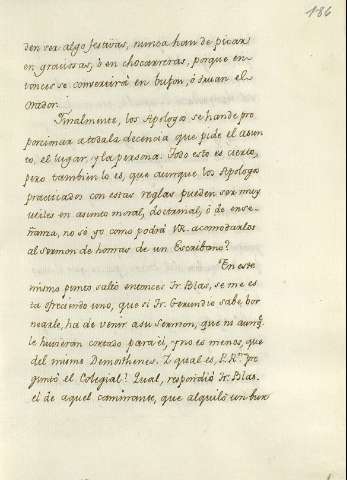 186
den ser algo festivas, nunca han de picar
en graciosas, ò en chocarreras, porque en-
tonces se convertirà en bufon, ó truan el
Orador.
Finalmente, los Apologos se han de pro
porcionar a toda la decencia que pide el asun
to, el lugar, y la persona. Todo esto es cierto,
pero tambien lo es, que aunque los Apologos
practicados con estas reglas pueden ser muy
utiles en asunto moral, doctrinal, ó de ense-
ñanza, no sé yo como podrà VR. acomodarlos
al sermon de honras de un Escribano?
En este
mismo punto saltò entonces Fr. Blas, se me es
ta ofreciendo uno, que si Fr. Gerundio sabe bor
nearle, ha de venir a su sermon, que ni aunq.
le huvieran cortado para èl, y no es menos, que
del mismo Demosthenes. Y qual es, P. Rmo pre
guntò el Colegial? Qual, respondiò Fr. Blas.
el de aquel caminante, que alquilò un bur